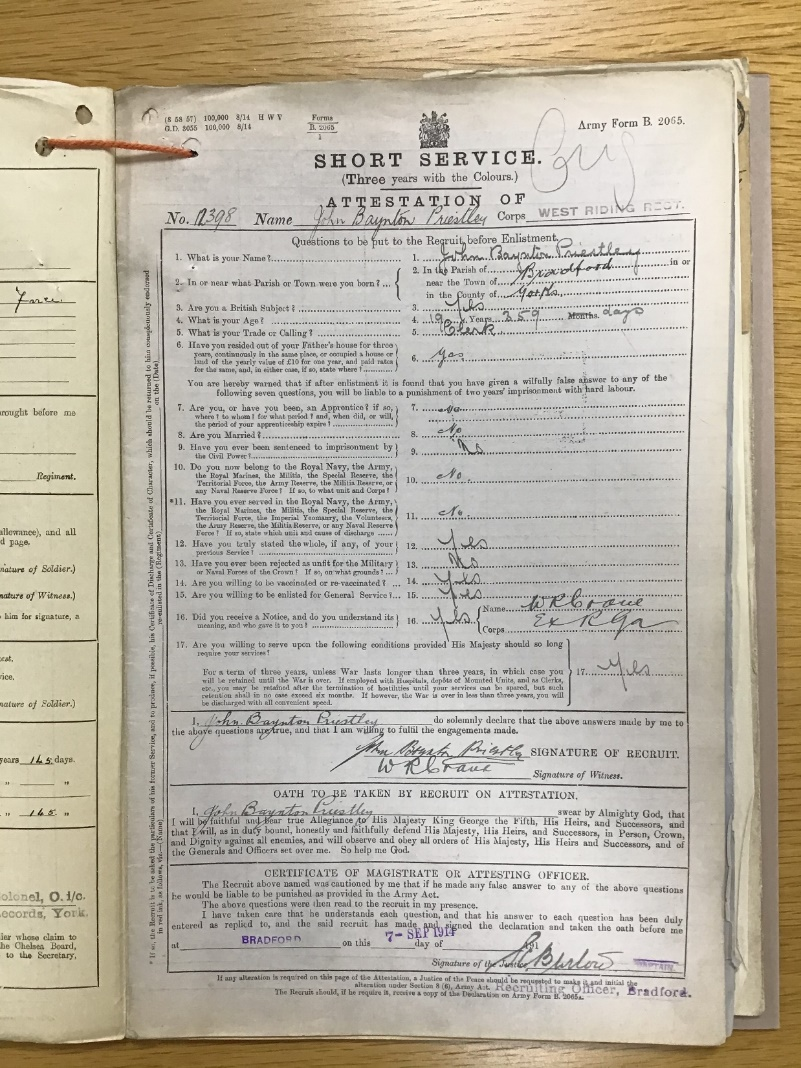 (8 58 57) 100,000 8/14 H W V
G.D. 3055 100,000 8/14
Forms
B. 2065
1
Army Form B. 2065.
SHORT SERVICE.
(Three years with the Colours.)
ATTESTATION OF
No. 12398 Name John Baynton Priestley Corps WEST RIDING REGT.
Questions to be put to the Recruit before Enlistment.
1. What is your Name? 1. John Baynton Priestley
2. In or near what Parish or Town were you born? 2. In the Parish of in or
near the Town of Bradford
in the County of Yorks
3. Are you a British Subject? 3. Yes
4. What is your Age? 4. 19 Years 359 Months. days
5. What is your Trade or Calling? 5. Clerk
6. Have you resided out of your Father's house for three
years, continuously in the same place, or occupied a house or
land of the yearly value of £10 for one year, and paid rates
for the same, and, in either case, if so, state where? 6. Yes
You are hereby warned that if after enlistment it is found that you have given a wilfully false answer to any of the
following seven questions, you will be liable to a punishment of two years' imprisonment with hard labour.
7. Are you, or have you been, an Apprentice? if so,
where? to whom? for what period? and, when did, or will,
the period of your apprenticeship expire? 7. No
8. Are you Married? 8. No
9. Have you ever been sentenced to imprisonment by
the Civil Power? 9. No
10. Do you now belong to the Royal Navy, the Army,
the Royal Marines, the Militia, the Special Reserve, the
Territorial Force, the Army Reserve, the Militia Reserve, or
any Naval Reserve Force? If so, to what unit and Corps? 10. No
*11. Have you ever served in the Royal Navy, the Army,
the Royal Marines, the Militia, the Special Reserve, the
Territorial Force, the Imperial Yeomanry, the Volunteers,
the Army Reserve, the Militia Reserve, or any Naval Reserve
Force? If so, state which unit and cause of discharge 11. No
12. Have you truly stated the whole, if any, of your
previous Service? 12. Yes
13. Have you ever been rejected as unfit for the Military
or Naval Forces of the Crown? If so, on what grounds? 13. No
14. Are you willing to be vaccinated or re-vaccinated? 14. Yes
15. Are you willing to be enlisted for General Service? 15. Yes
16. Did you receive a Notice, and do you understand its
meaning, and who gave it to you? 16. Yes Name W R Crane
Corps Ex R Ga
17. Are you willing to serve upon the following conditions provided His Majesty should so long
require your services?
For a term of three years, unless War lasts longer than three years, in which case you
will be retained until the War is over. If employed with Hospitals, depôts of Mounted Units, and as Clerks,
etc., you may be retained after the termination of hostilities until your services can be spared, but such
retention shall in no case exceed six months. If however, the War is over in less than three years, you will
be discharged with all convenient speed. 17. Yes
I, John Baynton Priestley do solemnly declare that the above answers made by me to
the above questions are true, and that I am willing to fulfil the engagements made.
John Boynton Priestley SIGNATURE OF RECRUIT.
W R Crane Signature of Witness.
OATH TO BE TAKEN BY RECRUIT ON ATTESTATION.
I, John Baynton Priestley swear by Almighty God, that
I will be faithful and bear true Allegiance to His Majesty King George the Fifth, His Heirs, and Successors, and
that I will, as in duty bound, honestly and faithfully defend His Majesty, His Heirs, and Successors, in Person, Crown,
and Dignity against all enemies, and will observe and obey all orders of His Majesty, His Heirs and Successors, and of
the Generals and Officers set over me. So help me God.
CERTIFICATE OF MAGISTRATE OR ATTESTING OFFICER.
The Recruit above named was cautioned by me that if he made any false answer to any of the above questions
he would be liable to be punished as provided in the Army Act.
The above questions were then read to the recruit in my presence.
I have taken care that he understands each question, and that his answer to each question has been duly
entered as replied to, and the said recruit has made and signed the declaration and taken the oath before me
at BRADFORD on this 7-SEP 1914 day of 191
Signature of the Justice Barlow CAPTAIN.
If any alteration is required on this page of the Attestation, a Justice of the Peace should be requested to make it and initial the
alteration under Section 8 (6), Army Act. Recruiting Officer, Bradford.
The Recruit should, if he require it, receive a copy of the Declaration on Army Form B. 2065A.
* If so, the Recruit is to be asked the particulars of his former Service, and to produce, if possible, his Certificate of Discharge and Certificate of Character, which should be returned to him conspicuously endorsed
in red ink, as follows, viz.—(Name) re-enlisted in the (Regiment) on the (Date)
Force
brought before me
Regiment.
allowance), and all
page.
nature of Soldier.)
nature of Witness.)
him for signature, a
nature of Soldier.)
years 145 days.
" 145 "
Colonel, O. i/c.
Records, York.
whose claim to
Chelsea Board,
to the Secretary,